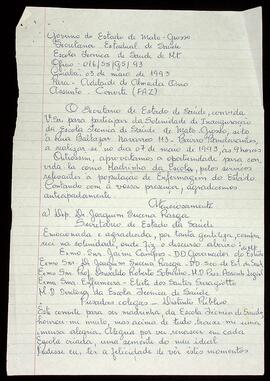 Governo do Estado de Mato-Grosso
Secretaria Estadual de Saúde
Escola Técnica de Saúde de Mt
Cuiabá, 03 de maio de 1993
Para - Adelaide de Almeida
Assunto - Convite (FAZ)
O Secretário de Estado de Saúde, convida
V.Sa. para participar da Solenidade de Inauguração
da Escola Técnica de Saúde de Mato Grosso, sito
à Rua Baltazar Navarros - Bairro Bandeirantes,
a realizar-se no dia 07 de maio de 1993, às 9 horas
Outrossim, aproveitamos a oportunidade para con-
vidá-la como Madrinha da Escola, pelos serviços
relevantes a população de Enfermagem do Estado.
Contando com a vossa presença, agradecemos
antecipadamente
Atenciosamente
a) Dep. Dr Joaquim Sucena Rasga
Secretário de Estado da Saúde
Emocionada e agradecida, por tanta gentileza, compa-
reci na solenidade, onde fiz o discurso abaixo:
Exmo. Snr. Jaime Campos - DD Governador do Estado
Exmo Snr Dr Joaquim Sucena Rasga - DD Sec de Est. de Saúde
Exmo Snr Prof. Osvaldo Roberto Sobrinho - M.D
Exma Snra. Enfermeira - Elete dos Santos
M.D Diretora da Escola Técnica de Saúde
Prezados colegas - Distinto Público
Este convite para ser madrinha, da Escola Técnica de Saúde
honrou-me muito, mas acima de tudo trouxe-me uma
imensa alegria. Alegria por ver renascer em cada
Escola criada, uma semente do meu ideal
Pudesse eu, ter a felicidade de viver estes momentos